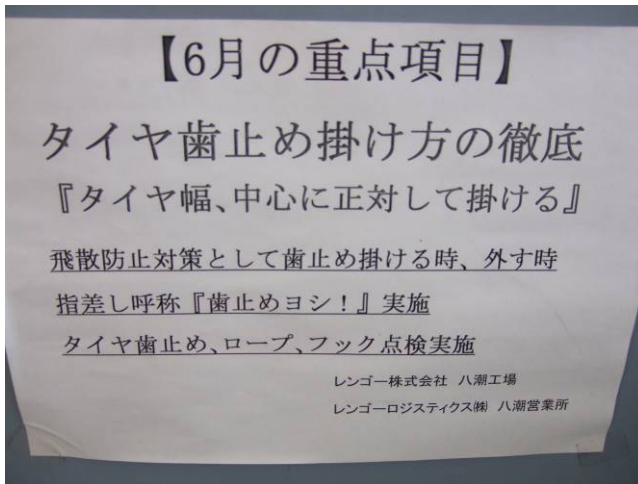 【6月の重点項目】
タイヤ歯止め掛け方の徹底
『タイヤ幅、中心に正対して掛ける』
飛散防止対策として歯止め掛ける時、外す時
指差し呼称『歯止めヨシ！』実施
タイヤ歯止め、ロープ、フック点検実施
レンゴー株式会社 八潮工場
レンゴーロジスティクス㈱ 八潮営業所